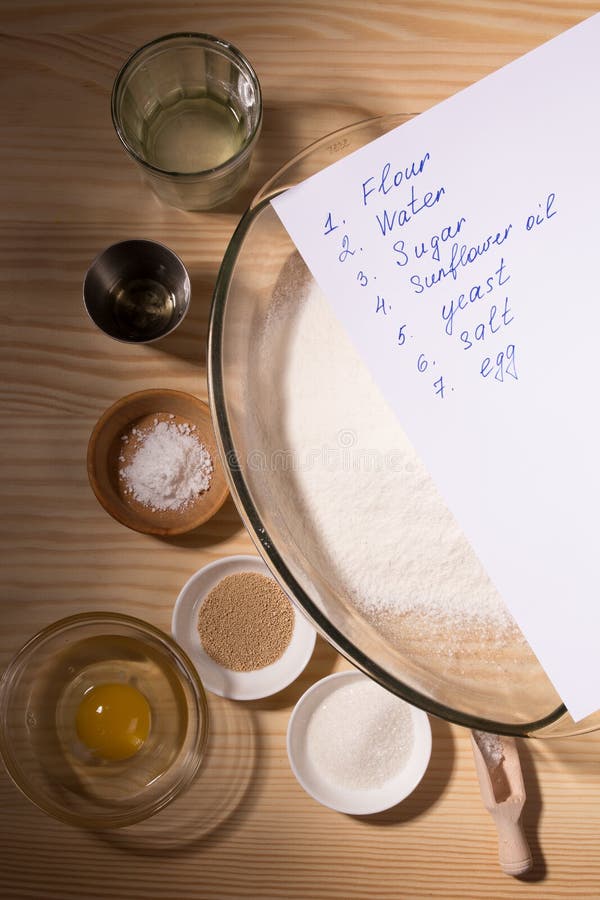 1. Flour
2. Water
3. Sugar
4. Sunflower oil
5. yeast
6. salt
7. egg
dreamstime